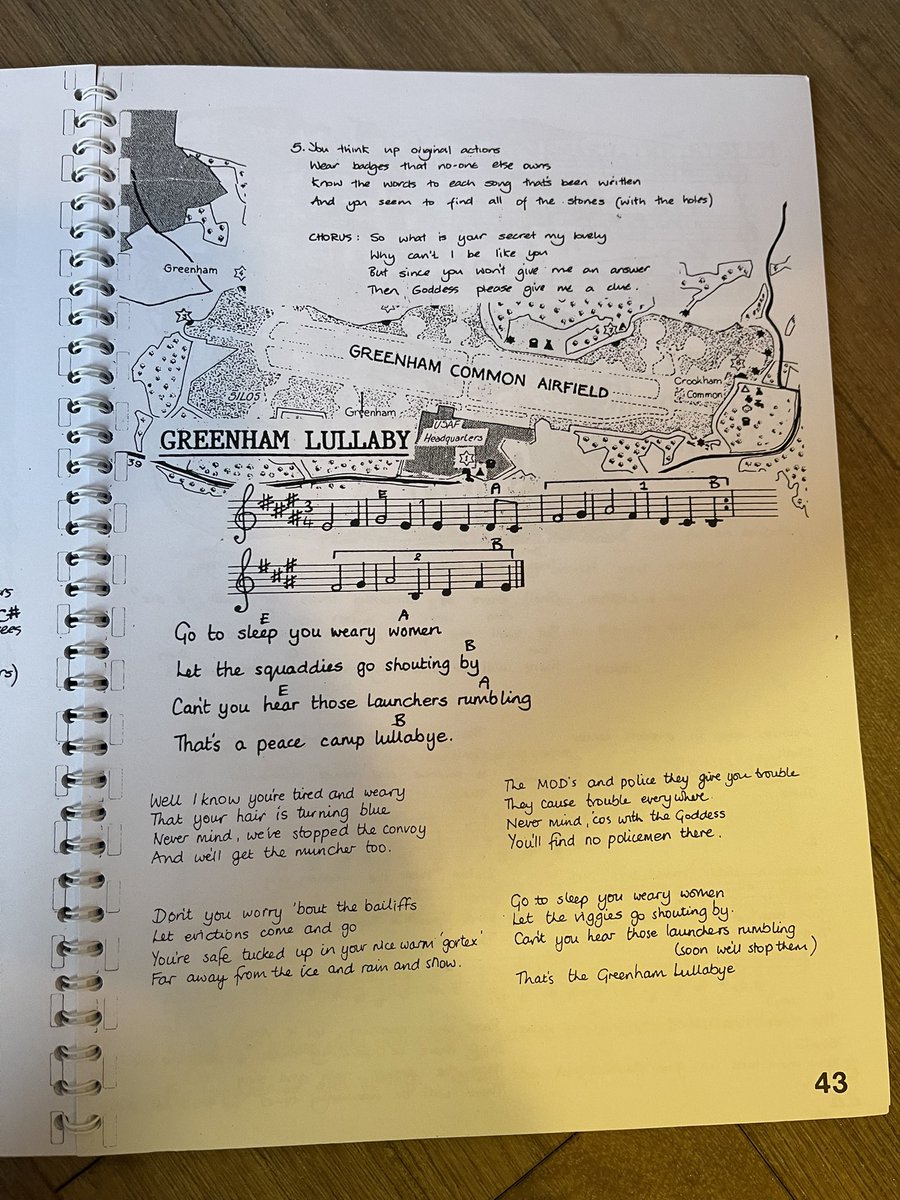 5. You think up original actions
Wear badges that no-one else owns
Know the words to each song that's been written
And you seem to find all of the stones (with the holes)
CHORUS: So what is your secret my lovely
Why can't I be like you
But since you won't give me an answer
Then Goddess please give me a clue.
Greenham
GREENHAM COMMON AIRFIELD
Crookham
Common
SILOS
Greenham
USAF
Headquarters
1
GREENHAM LULLABY
39
E A 1 B
3
4
2 B
E A
Go to sleep you weary women
B
Let the squaddies go shouting by
E A
Can't you hear those launchers rumbling
B
That's a peace camp lullabye.
Well I know you're tired and weary
That your hair is turning blue
Never mind, we've stopped the convoy
And we'll get the muncher too.
Don't you worry 'bout the bailiffs
Let evictions come and go
You're safe tucked up in your nice warm 'gortex'
Far away from the ice and rain and snow.
The MOD's and police they give you trouble
They cause trouble everywhere.
Never mind, 'cos with the Goddess
You'll find no policemen there.
Go to sleep you weary women
Let the viggies go shouting by.
Can't you hear those launchers rumbling
(soon we'll stop them)
That's the Greenham Lullabye
43
C#